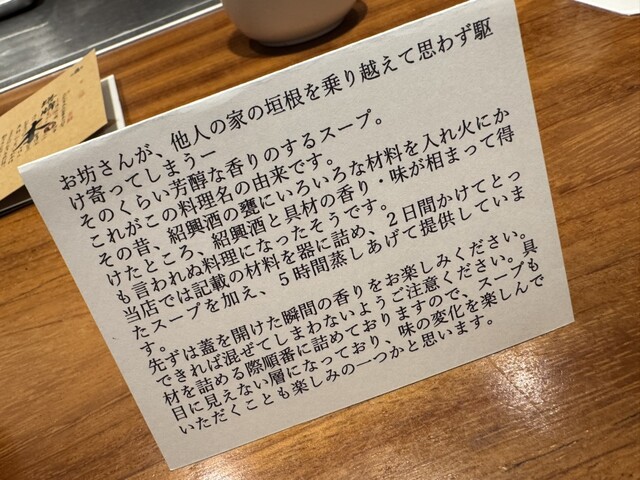 お坊さんが、他人の家の垣根を乗り越えて思わず駆
け寄ってしまうー
そのくらい芳醇な香りのするスープ。
これがこの料理名の由来です。
その昔、紹興酒の甕にいろいろな材料を入れ火にか
けたところ、紹興酒と具材の香り・味が相まって得
も言われぬ料理になったそうです。
当店では記載の材料を器に詰め、２日間かけてとっ
たスープを加え、５時間蒸しあげて提供していま
す。
先ずは蓋を開けた瞬間の香りをお楽しみください。
できれば混ぜてしまわないようご注意ください。具
材を詰める際順番に詰めておりますので、スープも
目に見えない層になっており、味の変化を楽しんで
いただくことも楽しみの一つかと思います。